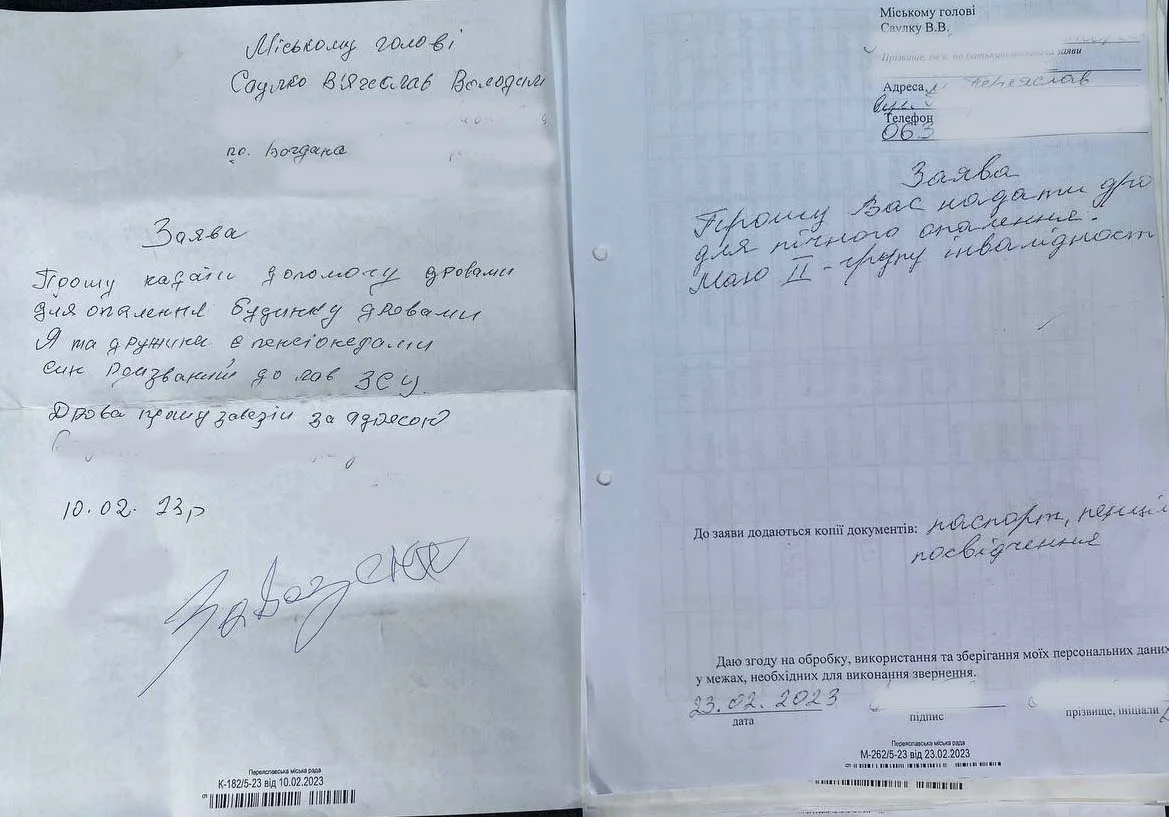 Міському голові
Саулко Вʼячеслав Володими
по. Богдана
Заява
Прошу надати допомогу дровами
для опалення будинку дровами
Я та дружина є пенсіонерами
син призваний до лав ЗСУ.
Дрова прошу завезти за адресою
10.02.23р
Переяславська міська рада
К-182/5-23 від 10.02.2023
Міському голові
Саулку В.В.
Прізвище, ім'я, по батькові заяви
Адреса м Переяслав
вул
Телефон
063
Заява
Прошу Вас надати дро
для пічного опалення.
Маю ІІ - групу інвалідност
До заяви додаються копії документів: паспорт,
посвідчення
Даю згоду на обробку, використання та зберігання моїх персональних даних
у межах, необхідних для виконання звернення.
23.02.2023
дата
підпис
прізвище, ініціали
Переяславська міська рада
М-262/5-23 від 23.02.2023